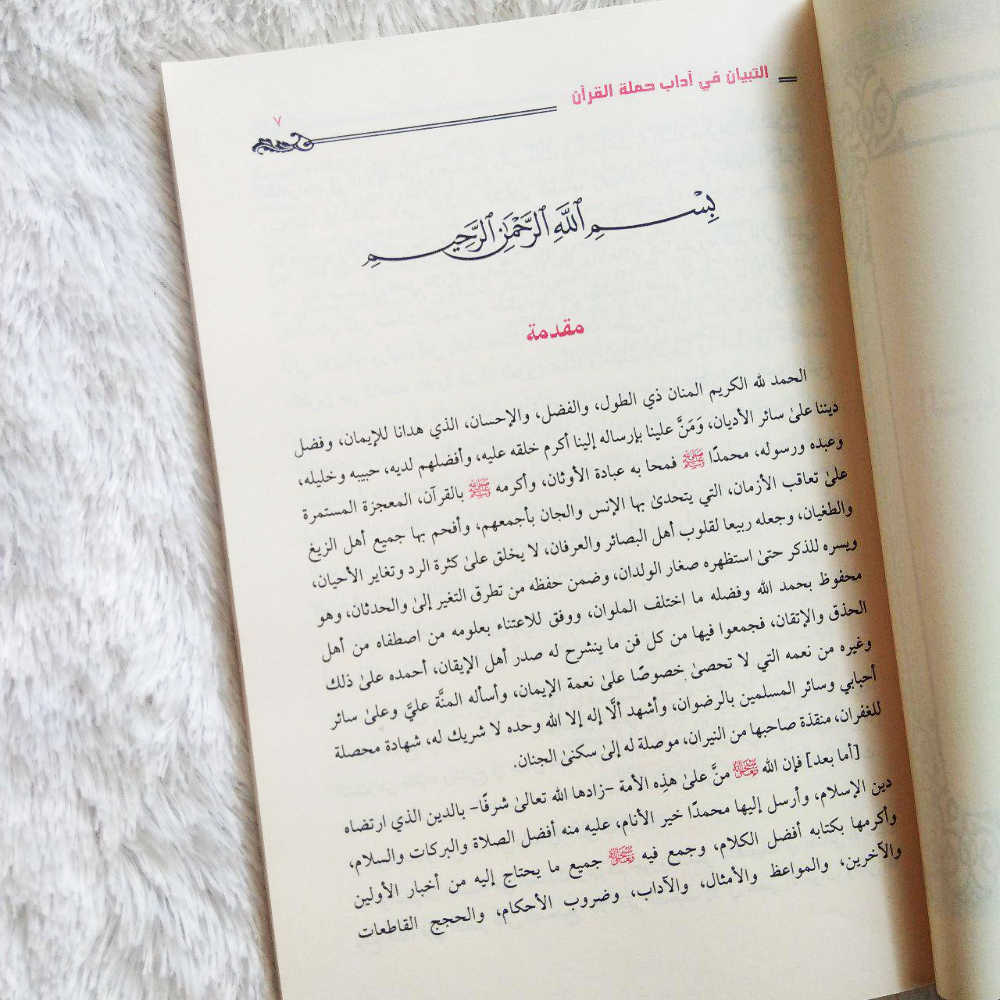 التبيان في آداب حملة القرآن
٧
بِسْمِ ٱللَّهِ ٱلرَّحْمَٰنِ ٱلرَّحِيمِ
مقدمة
الحمد لله الكريم المنان ذي الطول، والفضل، والإحسان، الذي هدانا للإيمان، وفضل
ديننا علىٰ سائر الأديان، وَمَنَّ علينا بإرساله إلينا أكرم خلقه عليه، وأفضلهم لديه، حبيبه وخليله،
وعبده ورسوله، محمدًا ﷺ فمحا به عبادة الأوثان، وأكرمه ﷺ بالقرآن، المعجزة المستمرة
علىٰ تعاقب الأزمان، التي يتحدىٰ بها الإنس والجان بأجمعهم، وأفحم بها جميع أهل الزيغ
والطغيان، وجعله ربيعا لقلوب أهل البصائر والعرفان، لا يخلق علىٰ كثرة الرد وتغاير الأحيان،
ويسره للذكر حتىٰ استظهره صغار الولدان، وضمن حفظه من تطرق التغير إلىٰ والحدثان، وهو
محفوظ بحمد الله وفضله ما اختلف الملوان، ووفق للاعتناء بعلومه من اصطفاه من أهل
الحذق والإتقان، فجمعوا فيها من كل فن ما ينشرح له صدر أهل الإيقان، أحمده علىٰ ذلك
وغيره من نعمه التي لا تحصىٰ خصوصًا علىٰ نعمة الإيمان، وأسأله المنَّة عليَّ وعلىٰ سائر
أحبابي وسائر المسلمين بالرضوان، وأشهد ألَّا إله إلا الله وحده لا شريك له، شهادة محصلة
للغفران، منقذة صاحبها من النيران، موصلة له إلىٰ سكنىٰ الجنان.
[أما بعد] فإن الله منَّ علىٰ هذِه الأمة -زادها الله تعالىٰ شرفًا- بالدين الذي ارتضاه
دين الإسلام، وأرسل إليها محمدًا خير الأنام، عليه منه أفضل الصلاة والبركات والسلام،
وأكرمها بكتابه أفضل الكلام، وجمع فيه جميع ما يحتاج إليه من أخبار الأولين
والآخرين، والمواعظ والأمثال، والآداب، وضروب الأحكام، والحجج القاطعات